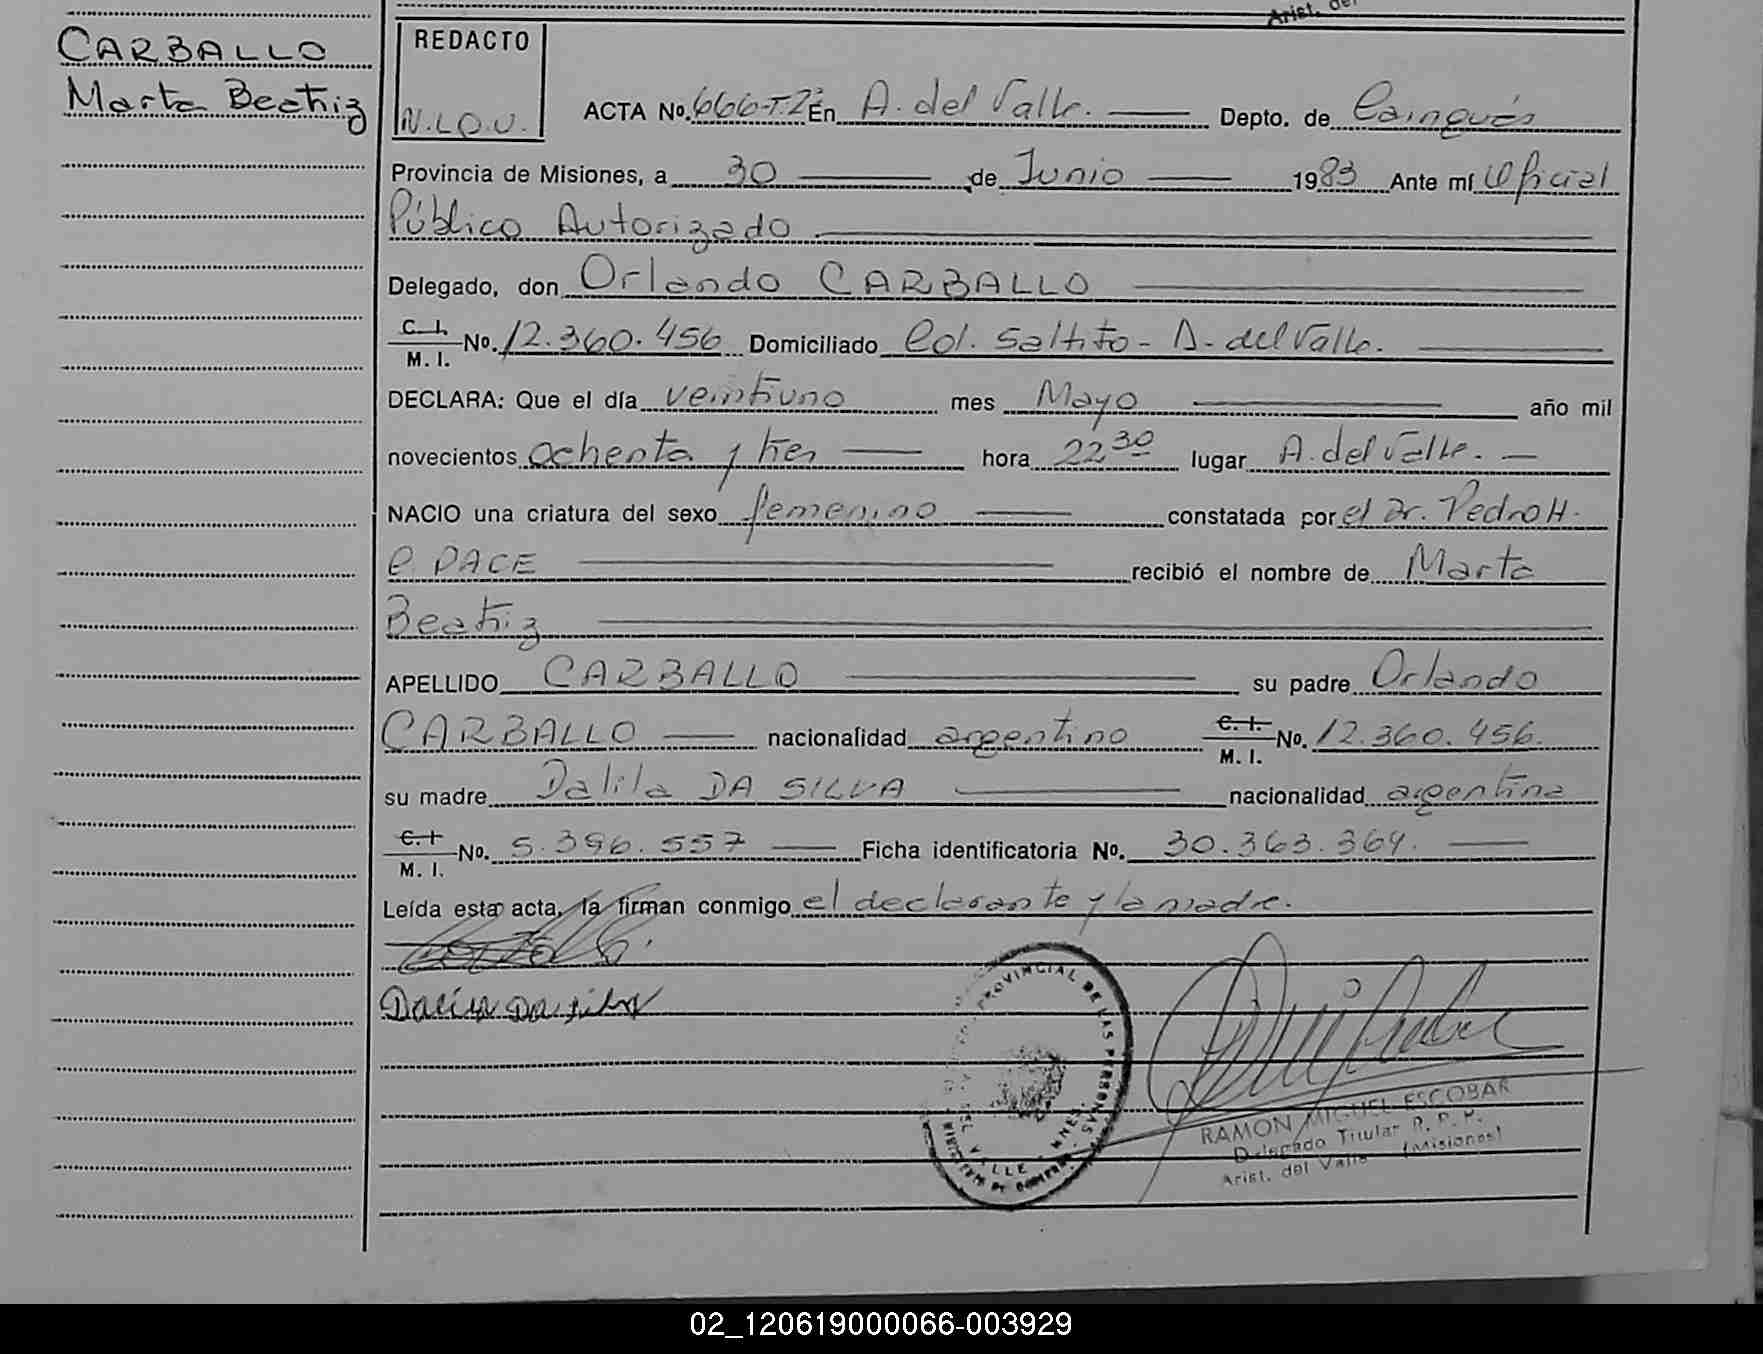 Arist. del
CARBALLO
Marta Beatriz
REDACTO
N.L.O.U.
ACTA No. 666-T.2º En A. del Valle. Depto. de Cainguás
Provincia de Misiones, a 30 de Junio 1983 Ante mí Oficial
Público Autorizado
Delegado, don Orlando CARBALLO
C. I. M. I. No. 12.360.456 Domiciliado Col. Saltito - A. del Valle.
DECLARA: Que el día veintiuno mes Mayo año mil
novecientos ochenta y tres hora 22 30 lugar A. del Valle.
NACIO una criatura del sexo femenino constatada por el Dr. Pedro H.
C. PACE recibió el nombre de Marta
Beatriz
APELLIDO CARBALLO su padre Orlando
CARBALLO nacionalidad argentino C. I. M. I. No. 12.360.456.
su madre Dalila DA SILVA nacionalidad argentina
C. I M. I. No. 5.396.557 Ficha identificatoria No. 30.363.364.
Leída esta acta, la firman conmigo el declarante y la madre.
Dalila Da Silva
PROVINCIAL DE LAS PERSONAS
DEL VALLE - MNES.
MINISTERIO DE GOBIERNO
RAMON MIGUEL ESCOBAR
Delegado Titular R. P. P.
Arist. del Valle (Misiones)
02_120619000066-003929